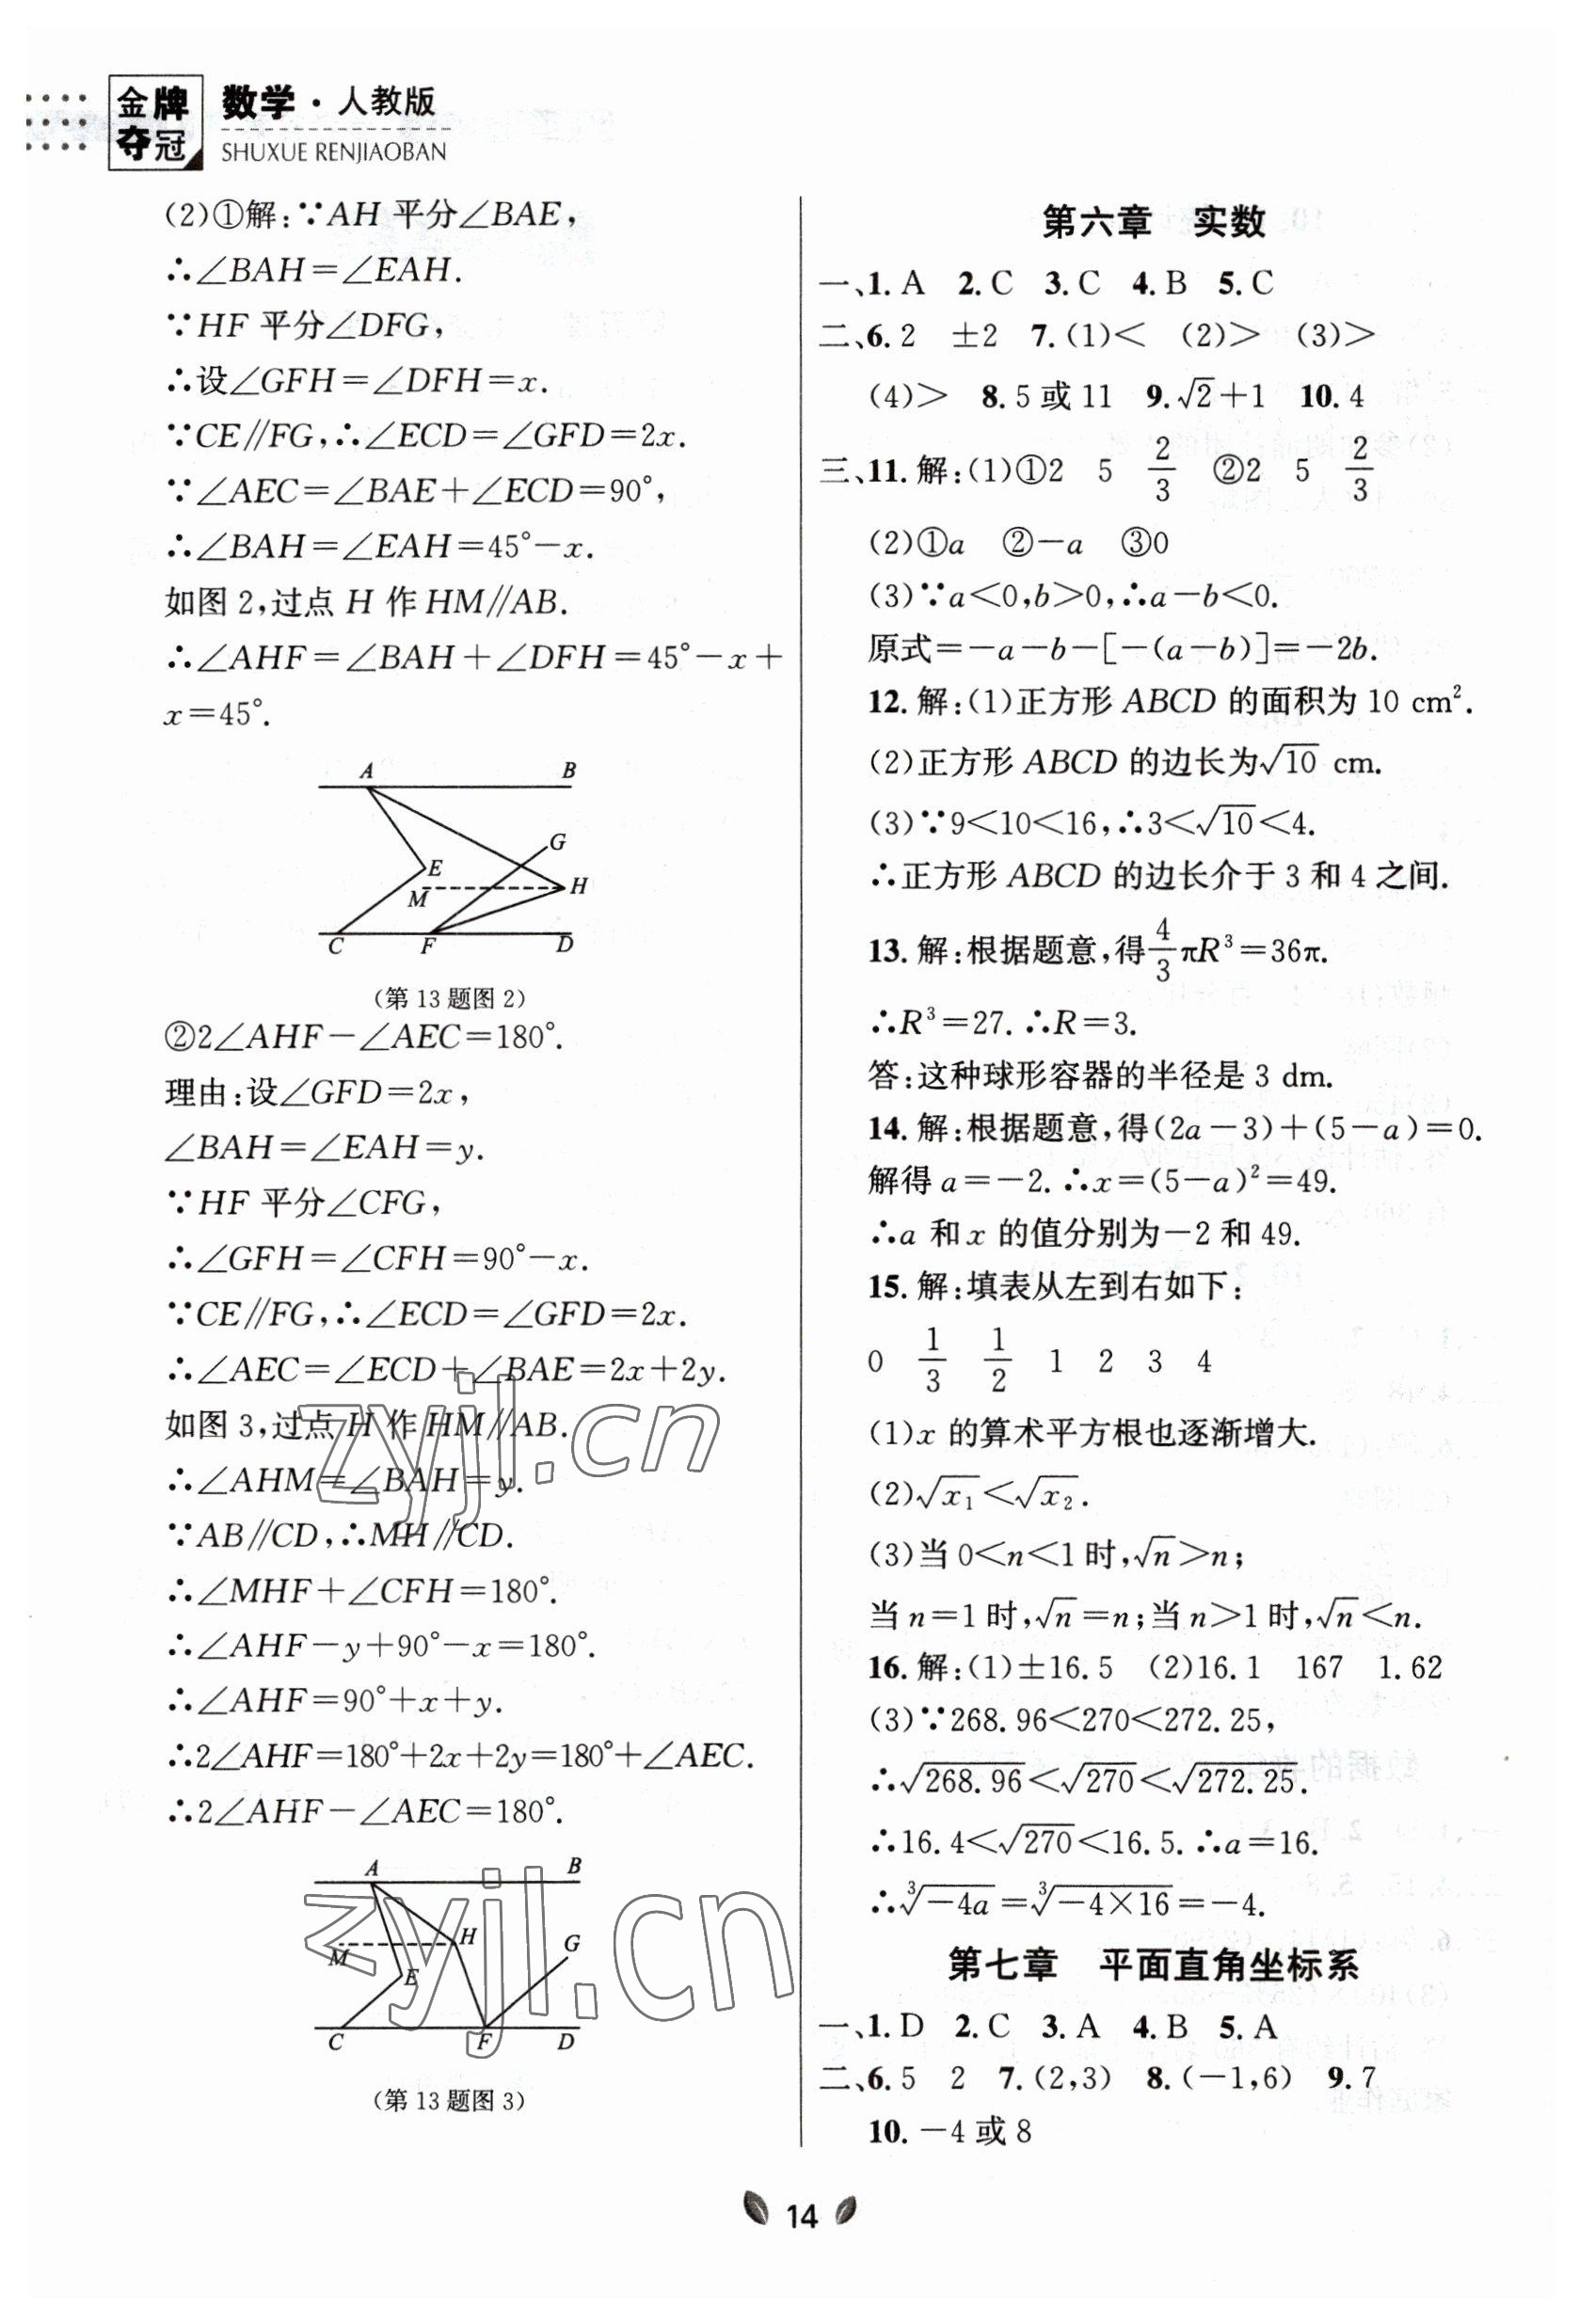 金牌夺冠 数学·人教版
SHUXUE RENJIAOBAN
(2)①解:∵AH 平分∠BAE,
∴∠BAH=∠EAH.
∵HF 平分∠DFG,
∴设∠GFH=∠DFH=x.
∵CE∥FG,∴∠ECD=∠GFD=2x.
∵∠AEC=∠BAE+∠ECD=90°,
∴∠BAH=∠EAH=45°-x.
如图 2,过点 H 作 HM∥AB.
∴∠AHF=∠BAH+∠DFH=45°-x+
x=45°.
A B
G
E
M H
C F D
(第 13 题图 2)
②2∠AHF-∠AEC=180°.
理由:设∠GFD=2x,
∠BAH=∠EAH=y.
∵HF 平分∠CFG,
∴∠GFH=∠CFH=90°-x.
∵CE∥FG,∴∠ECD=∠GFD=2x.
∴∠AEC=∠ECD+∠BAE=2x+2y.
如图 3,过点 H 作 HM∥AB.
∴∠AHM=∠BAH=y.
∵AB∥CD,∴MH∥CD.
∴∠MHF+∠CFH=180°.
∴∠AHF-y+90°-x=180°.
∴∠AHF=90°+x+y.
∴2∠AHF=180°+2x+2y=180°+∠AEC.
∴2∠AHF-∠AEC=180°.
A B
H G
M
E
C F D
(第 13 题图 3)
第六章 实数
一、1. A 2. C 3. C 4. B 5. C
二、6. 2 ±2 7. (1)< (2)> (3)>
(4)> 8. 5 或 11 9. √2+1 10. 4
三、11. 解:(1)①2 5 2/3 ②2 5 2/3
(2)①a ②-a ③0
(3)∵a<0,b>0,∴a-b<0.
原式=-a-b-[-(a-b)]=-2b.
12. 解:(1)正方形 ABCD 的面积为 10 cm².
(2)正方形 ABCD 的边长为√10 cm.
(3)∵9<10<16,∴3<√10<4.
∴正方形 ABCD 的边长介于 3 和 4 之间.
13. 解:根据题意,得4/3πR³=36π.
∴R³=27. ∴R=3.
答:这种球形容器的半径是 3 dm.
14. 解:根据题意,得(2a-3)+(5-a)=0.
解得 a=-2. ∴x=(5-a)²=49.
∴a 和 x 的值分别为-2 和 49.
15. 解:填表从左到右如下:
0 1/3 1/2 1 2 3 4
(1)x 的算术平方根也逐渐增大.
(2)√x₁<√x₂.
(3)当 0<n<1 时,√n>n;
当 n=1 时,√n=n;当 n>1 时,√n<n.
16. 解:(1)±16.5 (2)16.1 167 1.62
(3)∵268.96<270<272.25,
∴√268.96<√270<√272.25.
∴16.4<√270<16.5. ∴a=16.
∴∛-4a=∛-4×16=-4.
第七章 平面直角坐标系
一、1. D 2. C 3. A 4. B 5. A
二、6. 5 2 7. (2,3) 8. (-1,6) 9. 7
10. -4 或 8
14
zyjl.cn
zyjl.cn